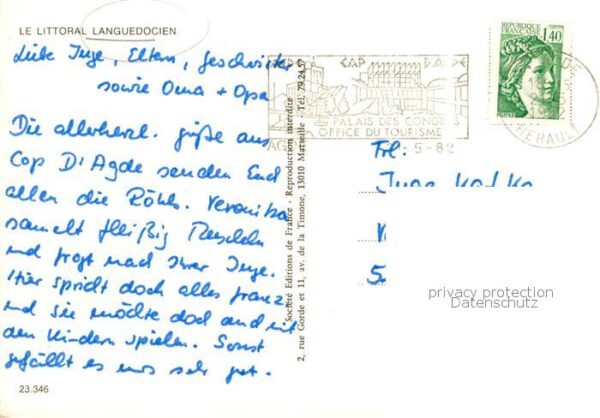 LE LITTORAL LANGUEDOCIEN.
Liebe Inge, Eltern, Geschwister
sowie Oma + Opa
Die allerherzl. grüße aus
Cap D'Agde senden Euch
allen die Röhls. Veronika
sammelt fleißig Muscheln
und fragt nach Ihrer Inge.
Hier spricht doch alles franz.
und sie möchte doch auch mit
den Kindern spielen. Sonst
gefällt es uns sehr gut.
23.346
Société Editions de France - Reproduction interdite
2, rue Gorde et 11, av. de la Timone, 13010 Marseille - Tél. 79.24.57
CAP D'AGDE
PALAIS DES CONGRES
OFFICE DU TOURISME
-5-82
HERAULT
REPUBLIQUE FRANÇAISE
1,40
POSTES
Frl.
privacy protection
Datenschutz